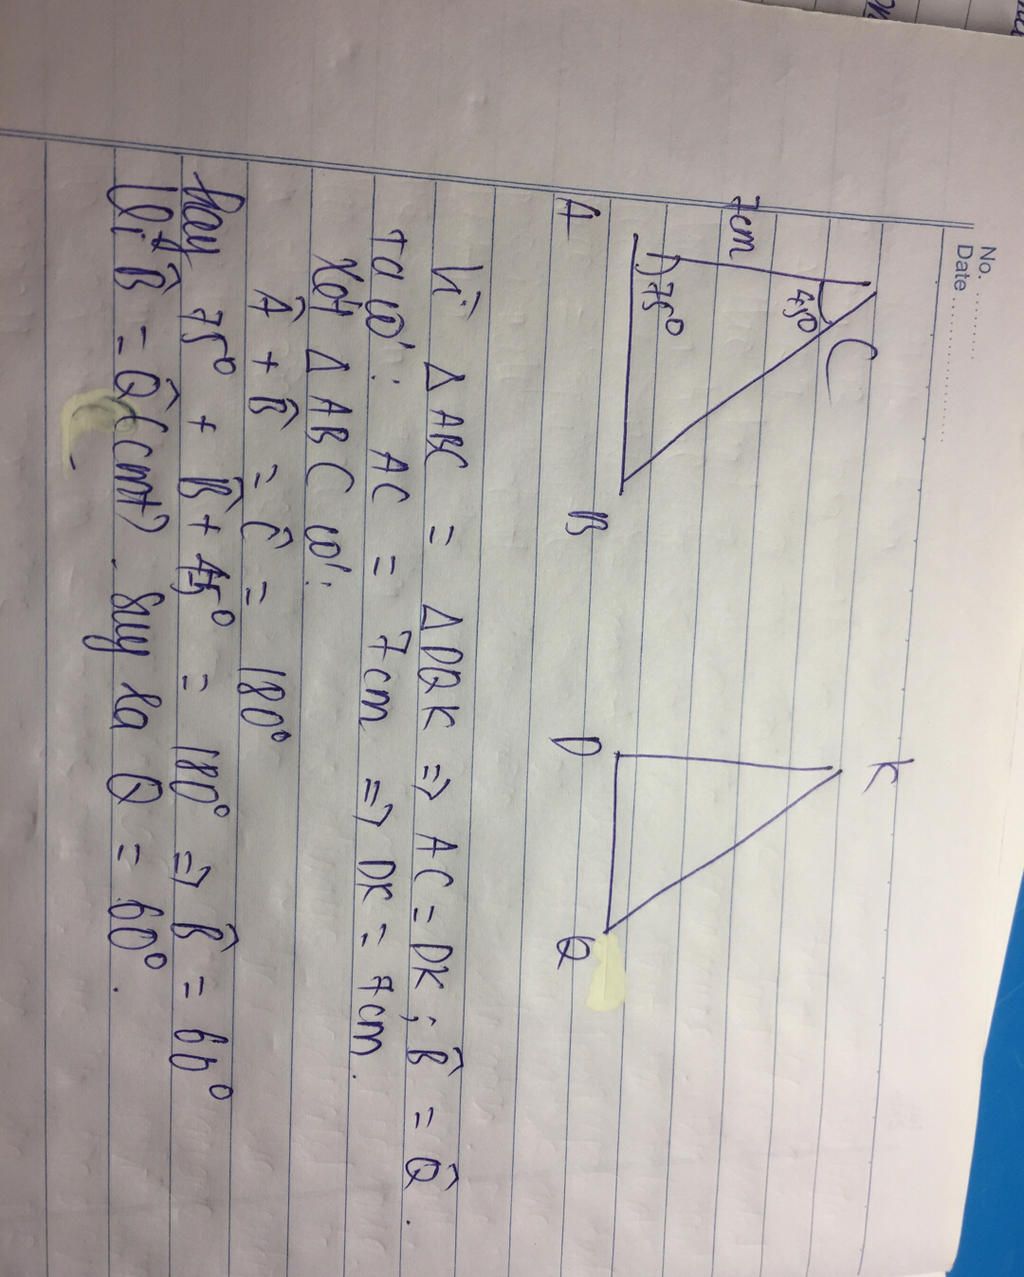 No. ............
Date ....................
C
K
45°
7cm
75°
A
B
D
Q
Vì Δ ABC = Δ DQK => AC = DK ; B̂ = Q̂ .
Ta có : AC = 7cm => DK = 7cm .
Xét Δ ABC có :
Â + B̂ = Ĉ = 180°
hay 75° + B̂ + 45° = 180° => B̂ = 60°
B̂ = Q̂ (cmt) . Suy ra Q = 60° .